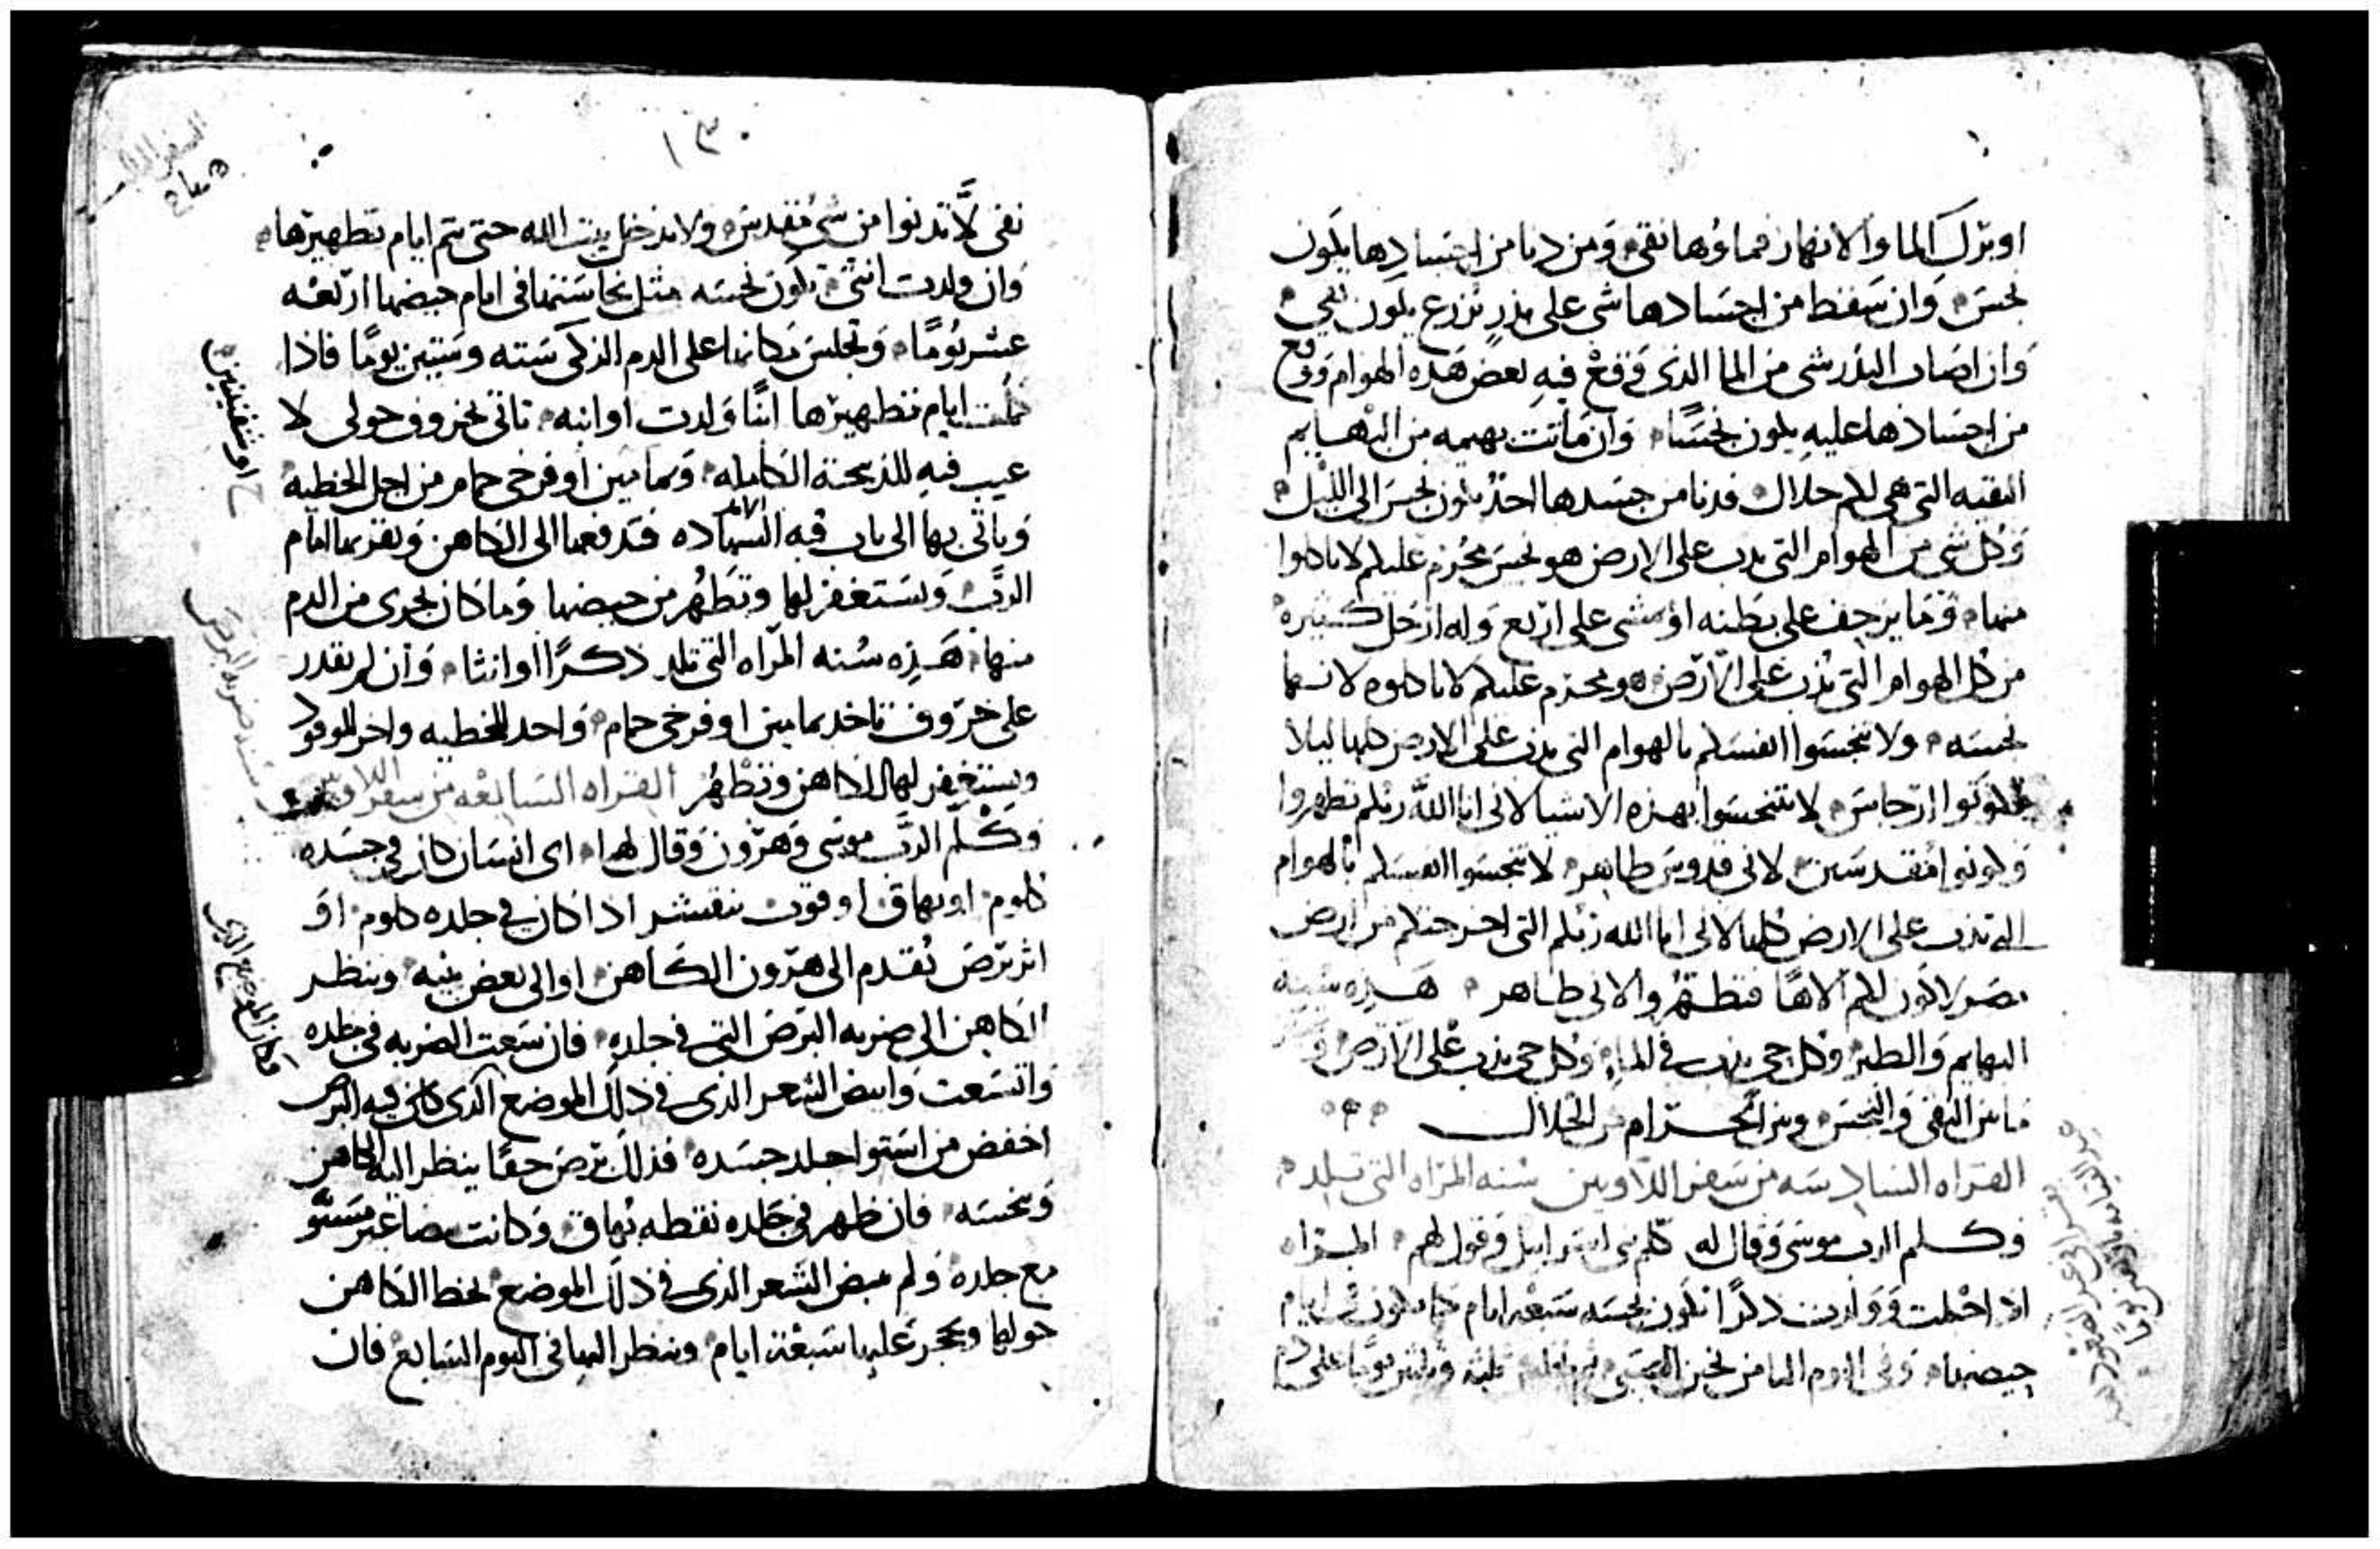 او برك الما والانهار فماوها نقي ومن دنا من اجسادها يكون
نجس وان سقط من اجسادها شي على بذر يزرع يكون نقي
وان اصاب البذر شي من الما الذي وقع فيه بعض هذه الهوام ووقع
من اجسادها عليه يكون نجسًا وان ماتت بهيمه من البهايم
النقيه التي هي لكم حلال فدنا من جسدها احد يكون نجس الى الليل
وكل شي من الهوام التي تدب على الارض هو نجس محرم عليكم لا تاكلوا
منها وما يزحف على بطنه او مشي على اربع وله ارجل كثيره
من كل الهوام التي تدب على الارض هو محرم عليكم لا تاكلوه لانها
نجسه ولا تنجسوا انفسكم بالهوام التي تدب على الارض كلها ليلا
تكونوا ارجاس لا تتنجسوا بهذه الاشيا لاني انا الله ربكم تطهروا
وكونوا مقدسين لاني قدوس طاهر لا تنجسوا انفسكم بالهوام
التي تدب على الارض كلها لاني انا الله ربكم التي اخرجتكم من ارض
مصر لاكون لكم الاهًا فتطهروا لاني طاهر هذه سنه
البهايم والطير وكل حي يدب في الما وكل حي يدب على الارض
ما بين النقي والنجس وبين الحرام من الحلال
القراه السادسه من سفر اللاويين سنه المراه التي تلد
وكلم الرب موسى وقال له كلم بني اسرايل وقول لهم المراه
اذا احبلت وولدت ذكرًا تكون نجسه سبعه ايام كما تكون في ايام
حيضها وفي اليوم الثامن يختن الصبي ثلثه وثلثين يومًا على دم
١٣٠
نقي لا تدنوا من شي مقدس ولا تدخل بيت الله حتى تتم ايام تطهيرها
وان ولدت انثى تكون نجسه مثل نجاستها في ايام حيضها اربعه
عشر يومًا وتجلس مكانها على الدم الزكي سته وستين يومًا فاذا
كملت ايام تطهيرها ابنًا ولدت او ابنه تاتي بخروف حولي لا
عيب فيه للذبيحة الكامله ويمامين او فرخي حمام من اجل الخطيه
وياتي بها الى باب قبه الشهاده فتدفعها الى الكاهن ويقربها امام
الرب ويستغفر لها وتطهر من حيضها وما كان يجري من الدم
منها هذه سنه المراه التي تلد ذكرًا او انثا وان لم تقدر
على خروف تاخد يمامين او فرخي حمام واحد للخطيه واخر للوقود
ويستغفر لها الكاهن وتطهر القراه السابعه من سفر اللاويين
وكلم الرب موسى وهرون وقال لهما اي انسان كان في جسده
كلوم او بهاق او قوب تنقشر اذا كان في جلده كلوم او
اثر برص يقدم الى هرون الكاهن او الى بعض بنيه وينظر
الكاهن الى ضربه البرص التي في جلده فان سعت الضربه في جلده
واتسعت وابيض الشعر الذي في ذلك الموضع الذي كان فيه البرص
اخفض من استوا جلد جسده فذلك برص حقًا ينظر اليه الكاهن
وينجسه فان ظهر في جلده نقطه بهاق وكانت بيضا غير مستو
مع جلده ولم يبيض الشعر الذي في ذلك الموضع يخط الكاهن
حولها ويحجر عليها سبعة ايام وينظر اليها في اليوم السابع فان
او شفنينين
وكان الموضع الذي